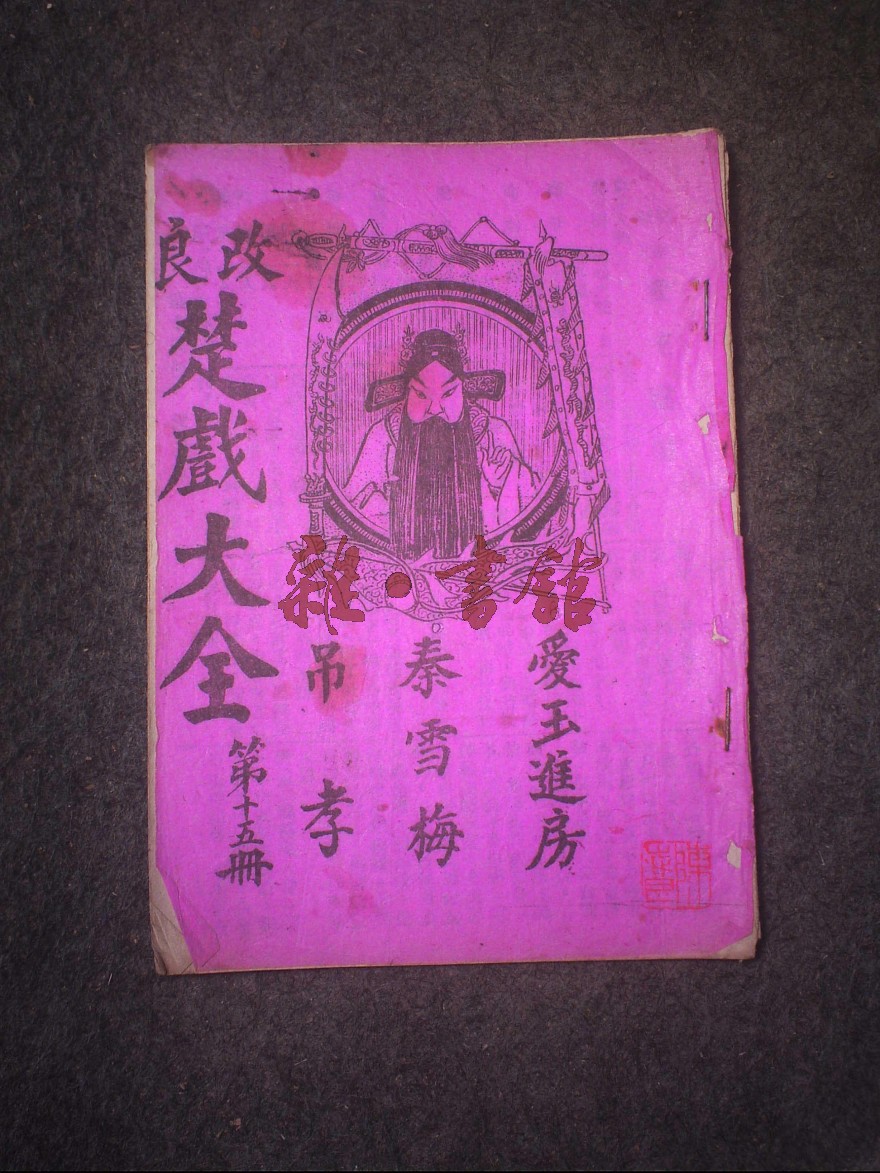 愛玉進房
秦雪梅
吊孝
改良
楚戲大全
第十五冊
雜·書舘